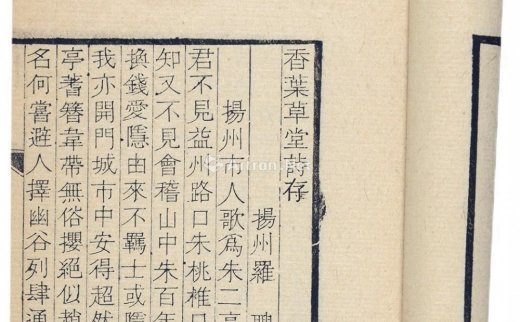 香葉草堂詩存
揚州羅 聘
揚州市人歌爲朱二亭
君不見益州路口朱桃椎口
知又不見會稽山中朱百年
換錢愛隱由來不羈士或隱
我亦開門城市中安得超然
亭蓍簪韋帶無俗攖絕似趙
名何嘗避人擇幽谷列肆通